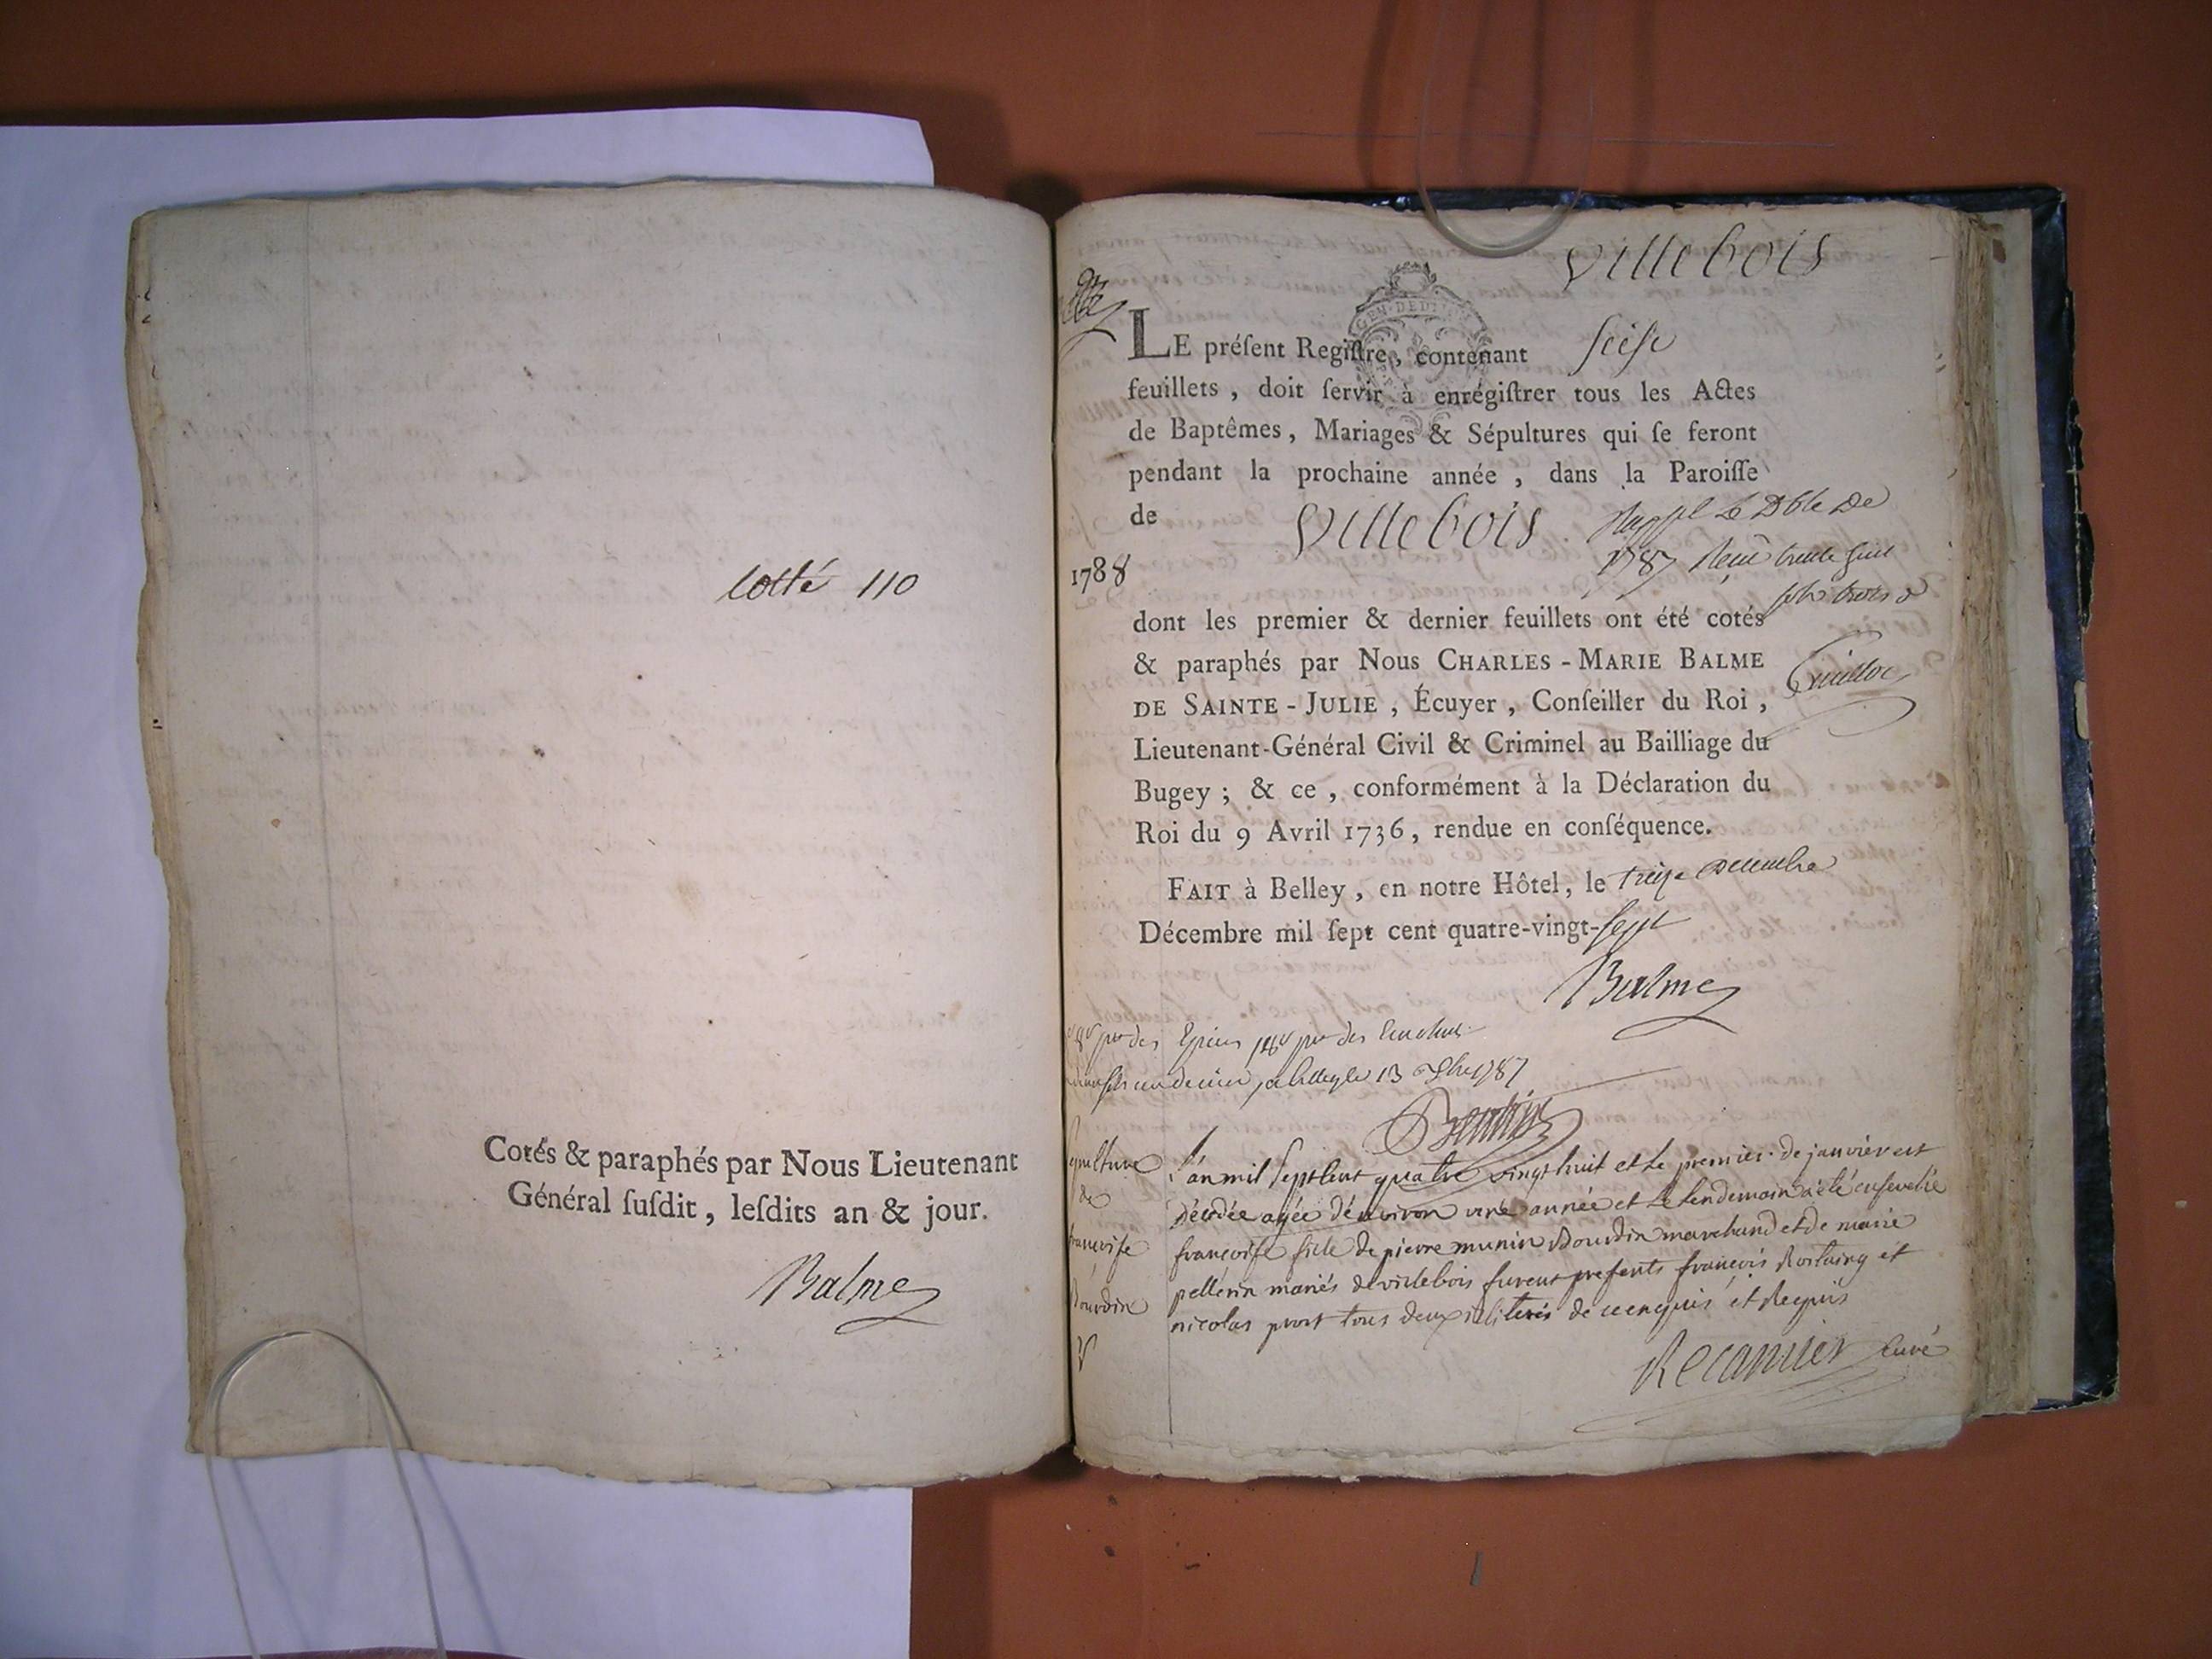 Cotté 110
Cotés & paraphés par Nous Lieutenant
Général ſuſdit, leſdits an & jour.
Balme
Villebois
GEN. DE DIJON
LE préſent Regiſtre, contenant seise
feuillets, doit ſervir à enrégiſtrer tous les Actes
de Baptêmes, Mariages & Sépultures qui ſe feront
pendant la prochaine année, dans la Paroiſſe
de Villebois
1788
le Dble De
1787 Reçu trente huit
sols trois d
dont les premier & dernier feuillets ont été cotés
& paraphés par Nous CHARLES-MARIE BALME
DE SAINTE-JULIE, Écuyer, Conſeiller du Roi,
Lieutenant-Général Civil & Criminel au Bailliage du
Bugey; & ce, conformément à la Déclaration du
Roi du 9 Avril 1736, rendue en conſéquence.
FAIT à Belley, en notre Hôtel, le treize Decembre
Décembre mil ſept cent quatre-vingt-sept
Balme
pr des Epices pr des
a belley le 13 Xbre 1787
Sepulture
de
francoise
Bourdin
L'an mil sept cent quatre vingt huit et le premier de janvier est
décédée agée d'environ une année et le lendemain a été ensevelie
francoise fille de pierre munin Bourdin marchand et de marie
pellerin mariés de villebois furent presents francois Rostaing et
nicolas prost tous deux illiterés de ce enquis et Requis
Recamier Curé